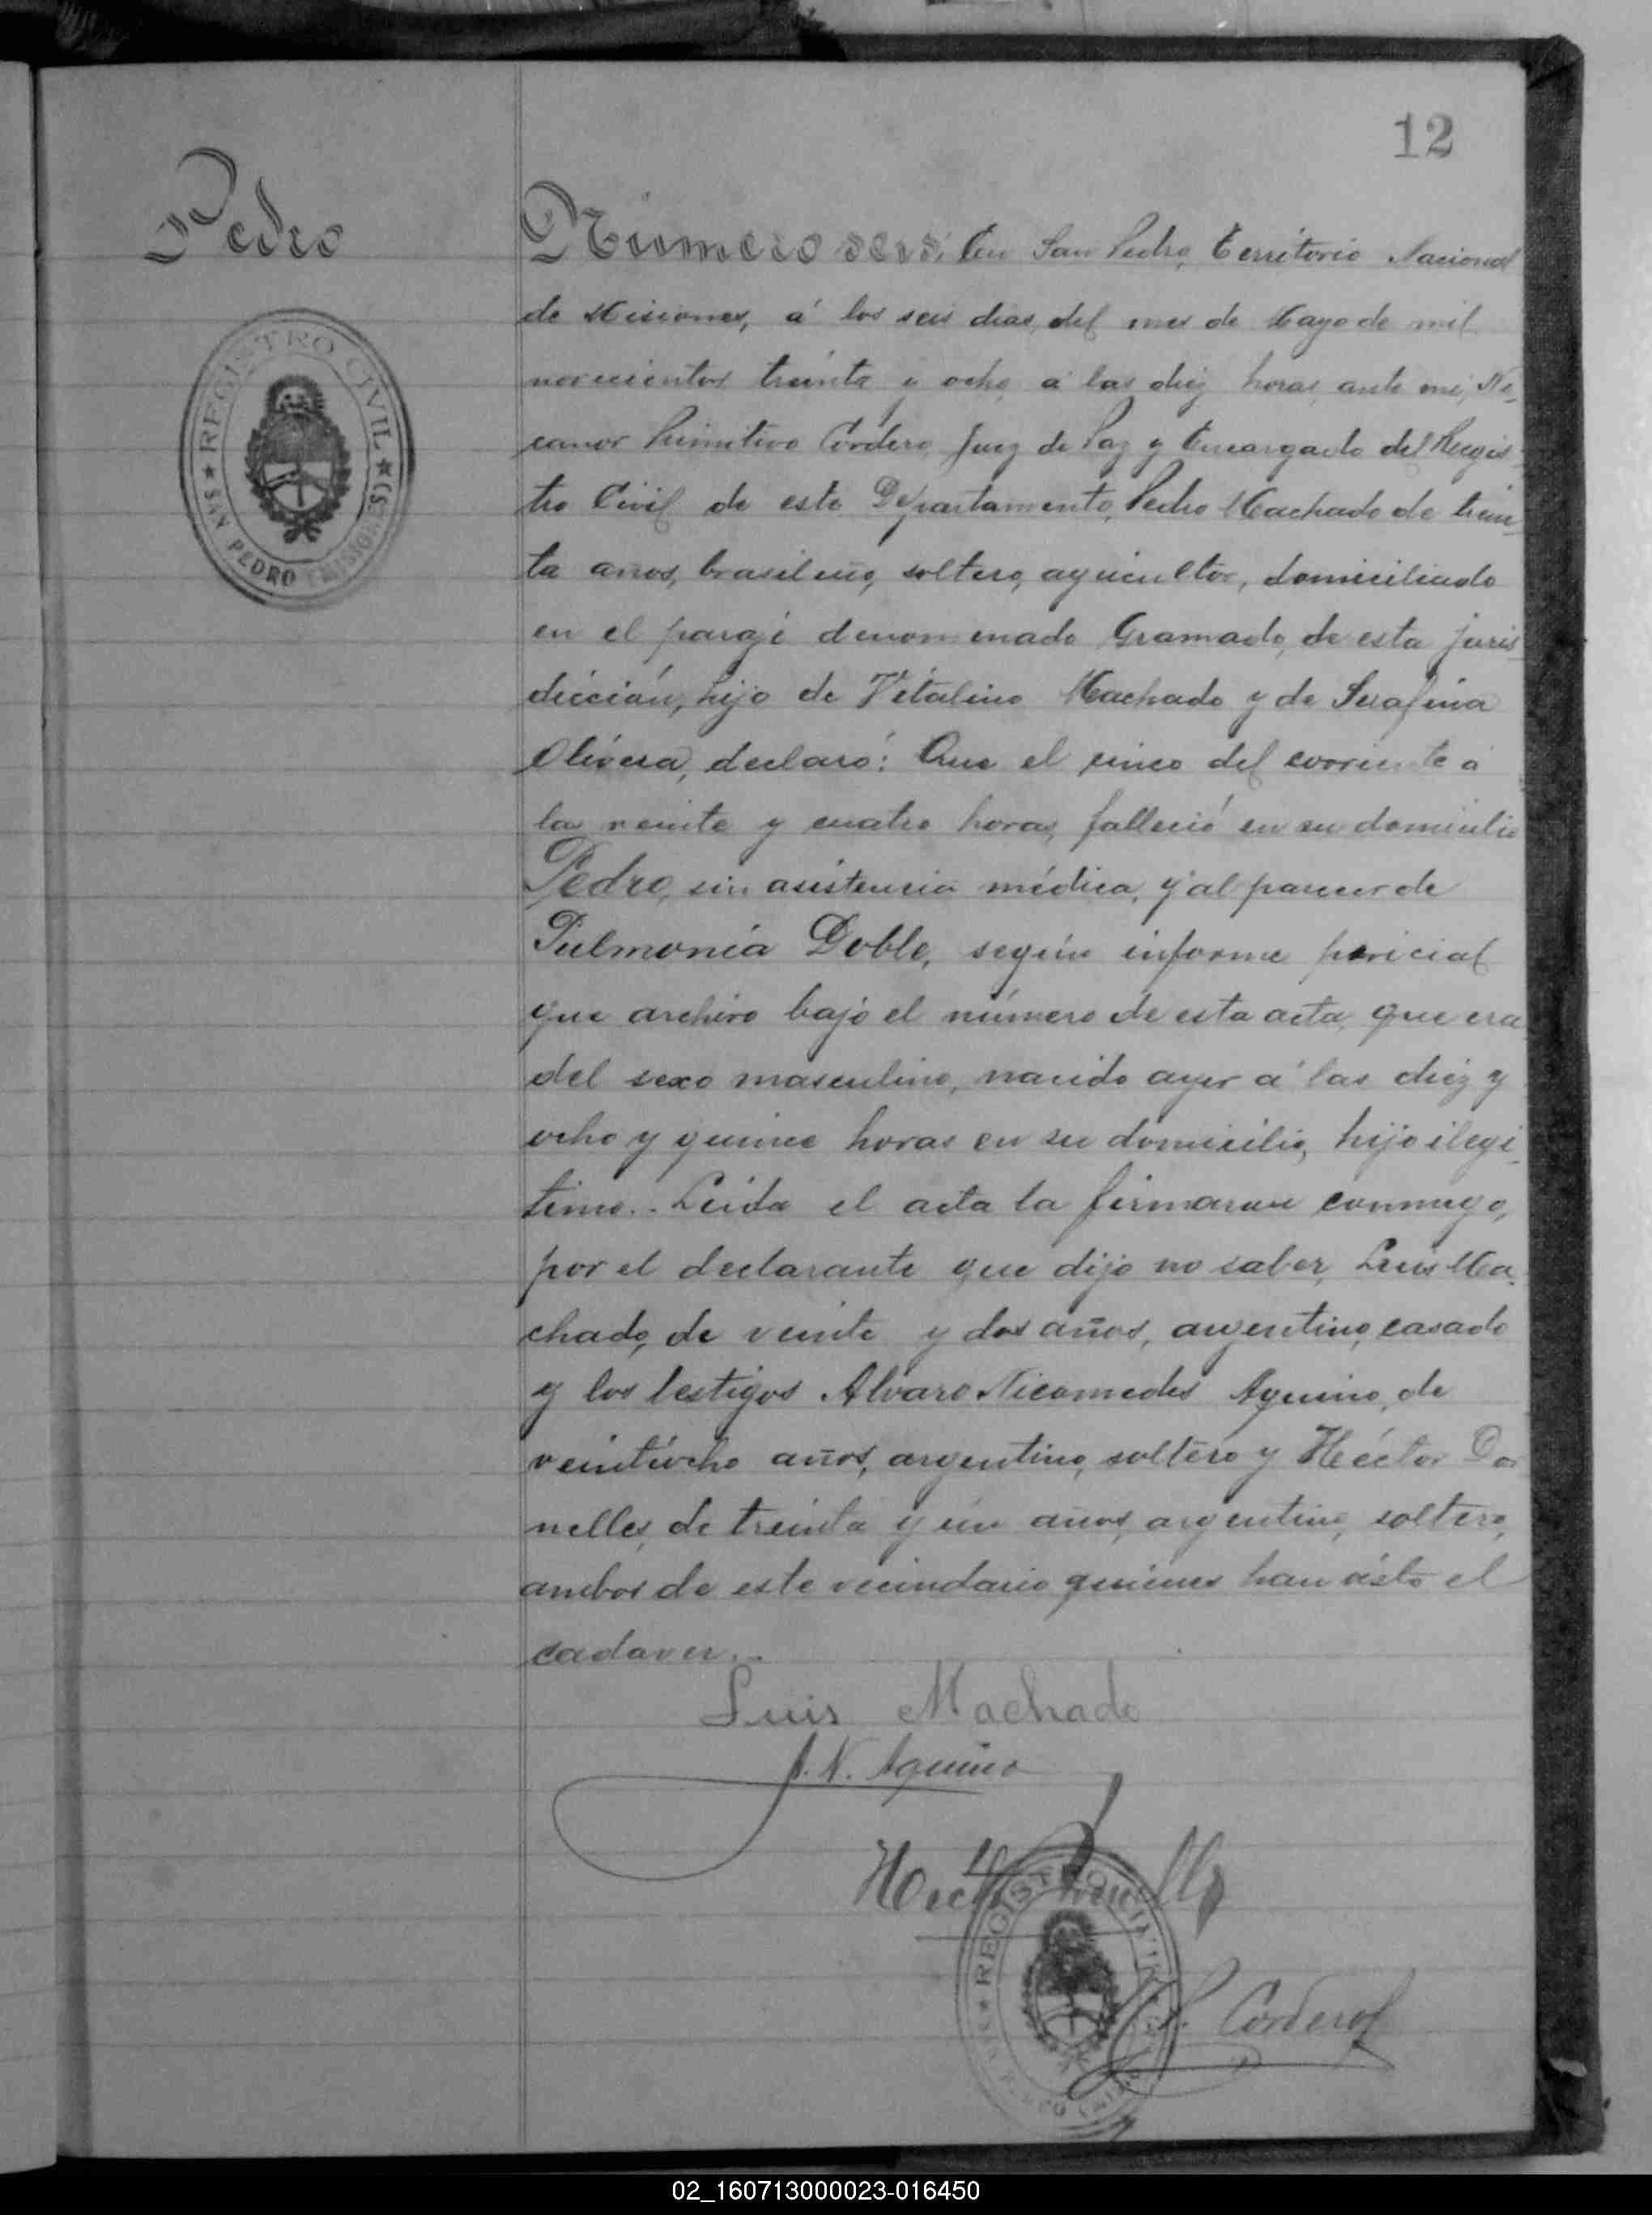 12
Pedro
REGISTRO CIVIL
SAN PEDRO (MISIONES)
Número seis: En San Pedro, Territorio Nacional
de Misiones, á los seis dias del mes de Mayo de mil
novecientos treinta y ocho, á las diez horas, ante mi, Ni-
canor Primitivo Cordero, Juez de Paz y Encargado del Regis-
tro Civil de este Departamento, Pedro Machado de trein-
ta años, brasileño, soltero, agricultor, domiciliado
en el paraje denominado Gramado, de esta juris-
dicción, hijo de Vitalino Machado y de Serafina
Olivera, declaró: Que el cinco del corriente á
la veinte y cuatro horas, falleció en su domicilio
Pedro, sin asistencia médica, y al parecer de
Pulmonía Doble, según informe pericial
que archivo bajo el número de esta acta, que era
del sexo masculino, nacido ayer á las diez y
ocho y quince horas en su domicilio, hijo ilegi-
timo.- Leida el acta la firmaron conmigo,
por el declarante que dijo no saber, Luis Ma-
chado, de veinte y dos años, argentino, casado
y los testigos Alvaro Nicomedes Aquino, de
veintiocho años, argentino, soltero y Héctor Dor
nelles, de treinta y un años, argentino, soltero,
ambos de este vecindario quienes han visto el
cadaver.-
Luis Machado
A. N. Aquino
Hector
REGISTRO CIVIL
P. Cordero
02_160713000023-016450